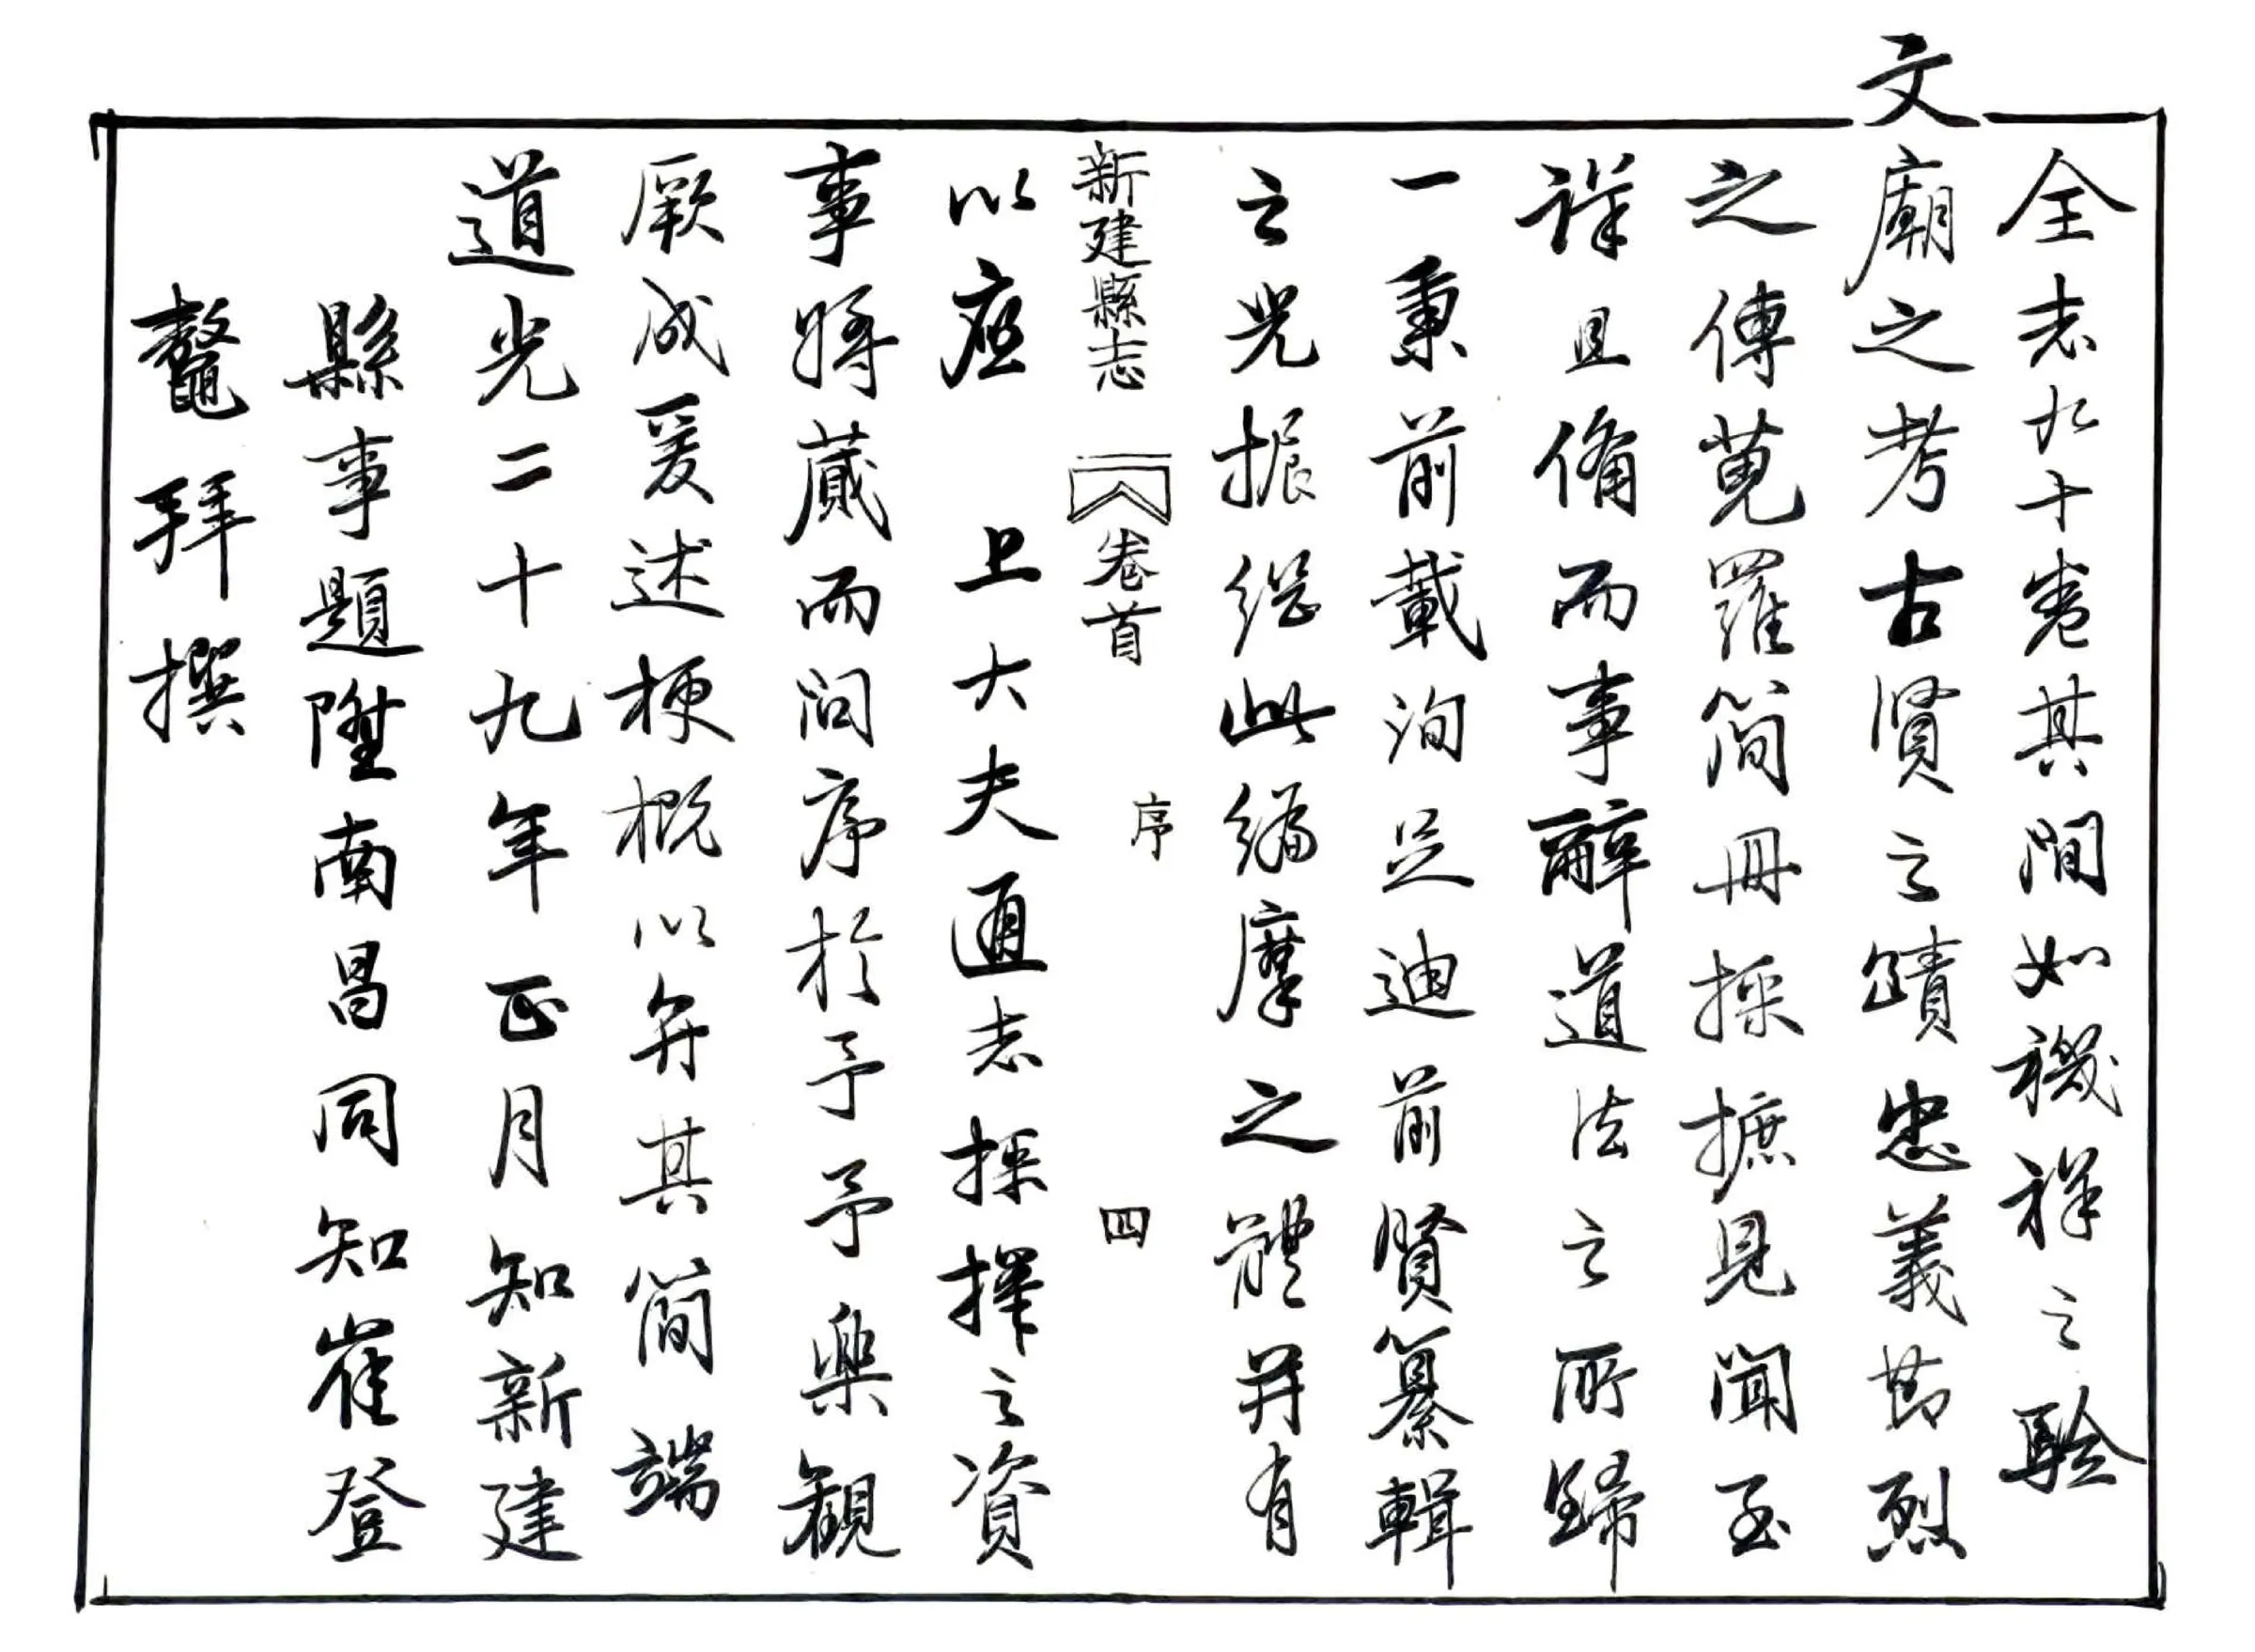 全志九十卷其間如禨祥之驗
文廟之考古賢之蹟忠義節烈
之傳蒐羅簡冊採摭見聞至
詳且備而事辭道法之所歸
一秉前載洵足迪前賢纂輯
之光振繼此編摩之體并有
新建縣志 卷首 序 四
以應 上大夫通志採擇之資
事將蕆而問序於予予樂觀
厥成爰述梗概以弁其簡端
道光二十九年正月知新建
縣事題陞南昌同知崔登
鼇拜撰